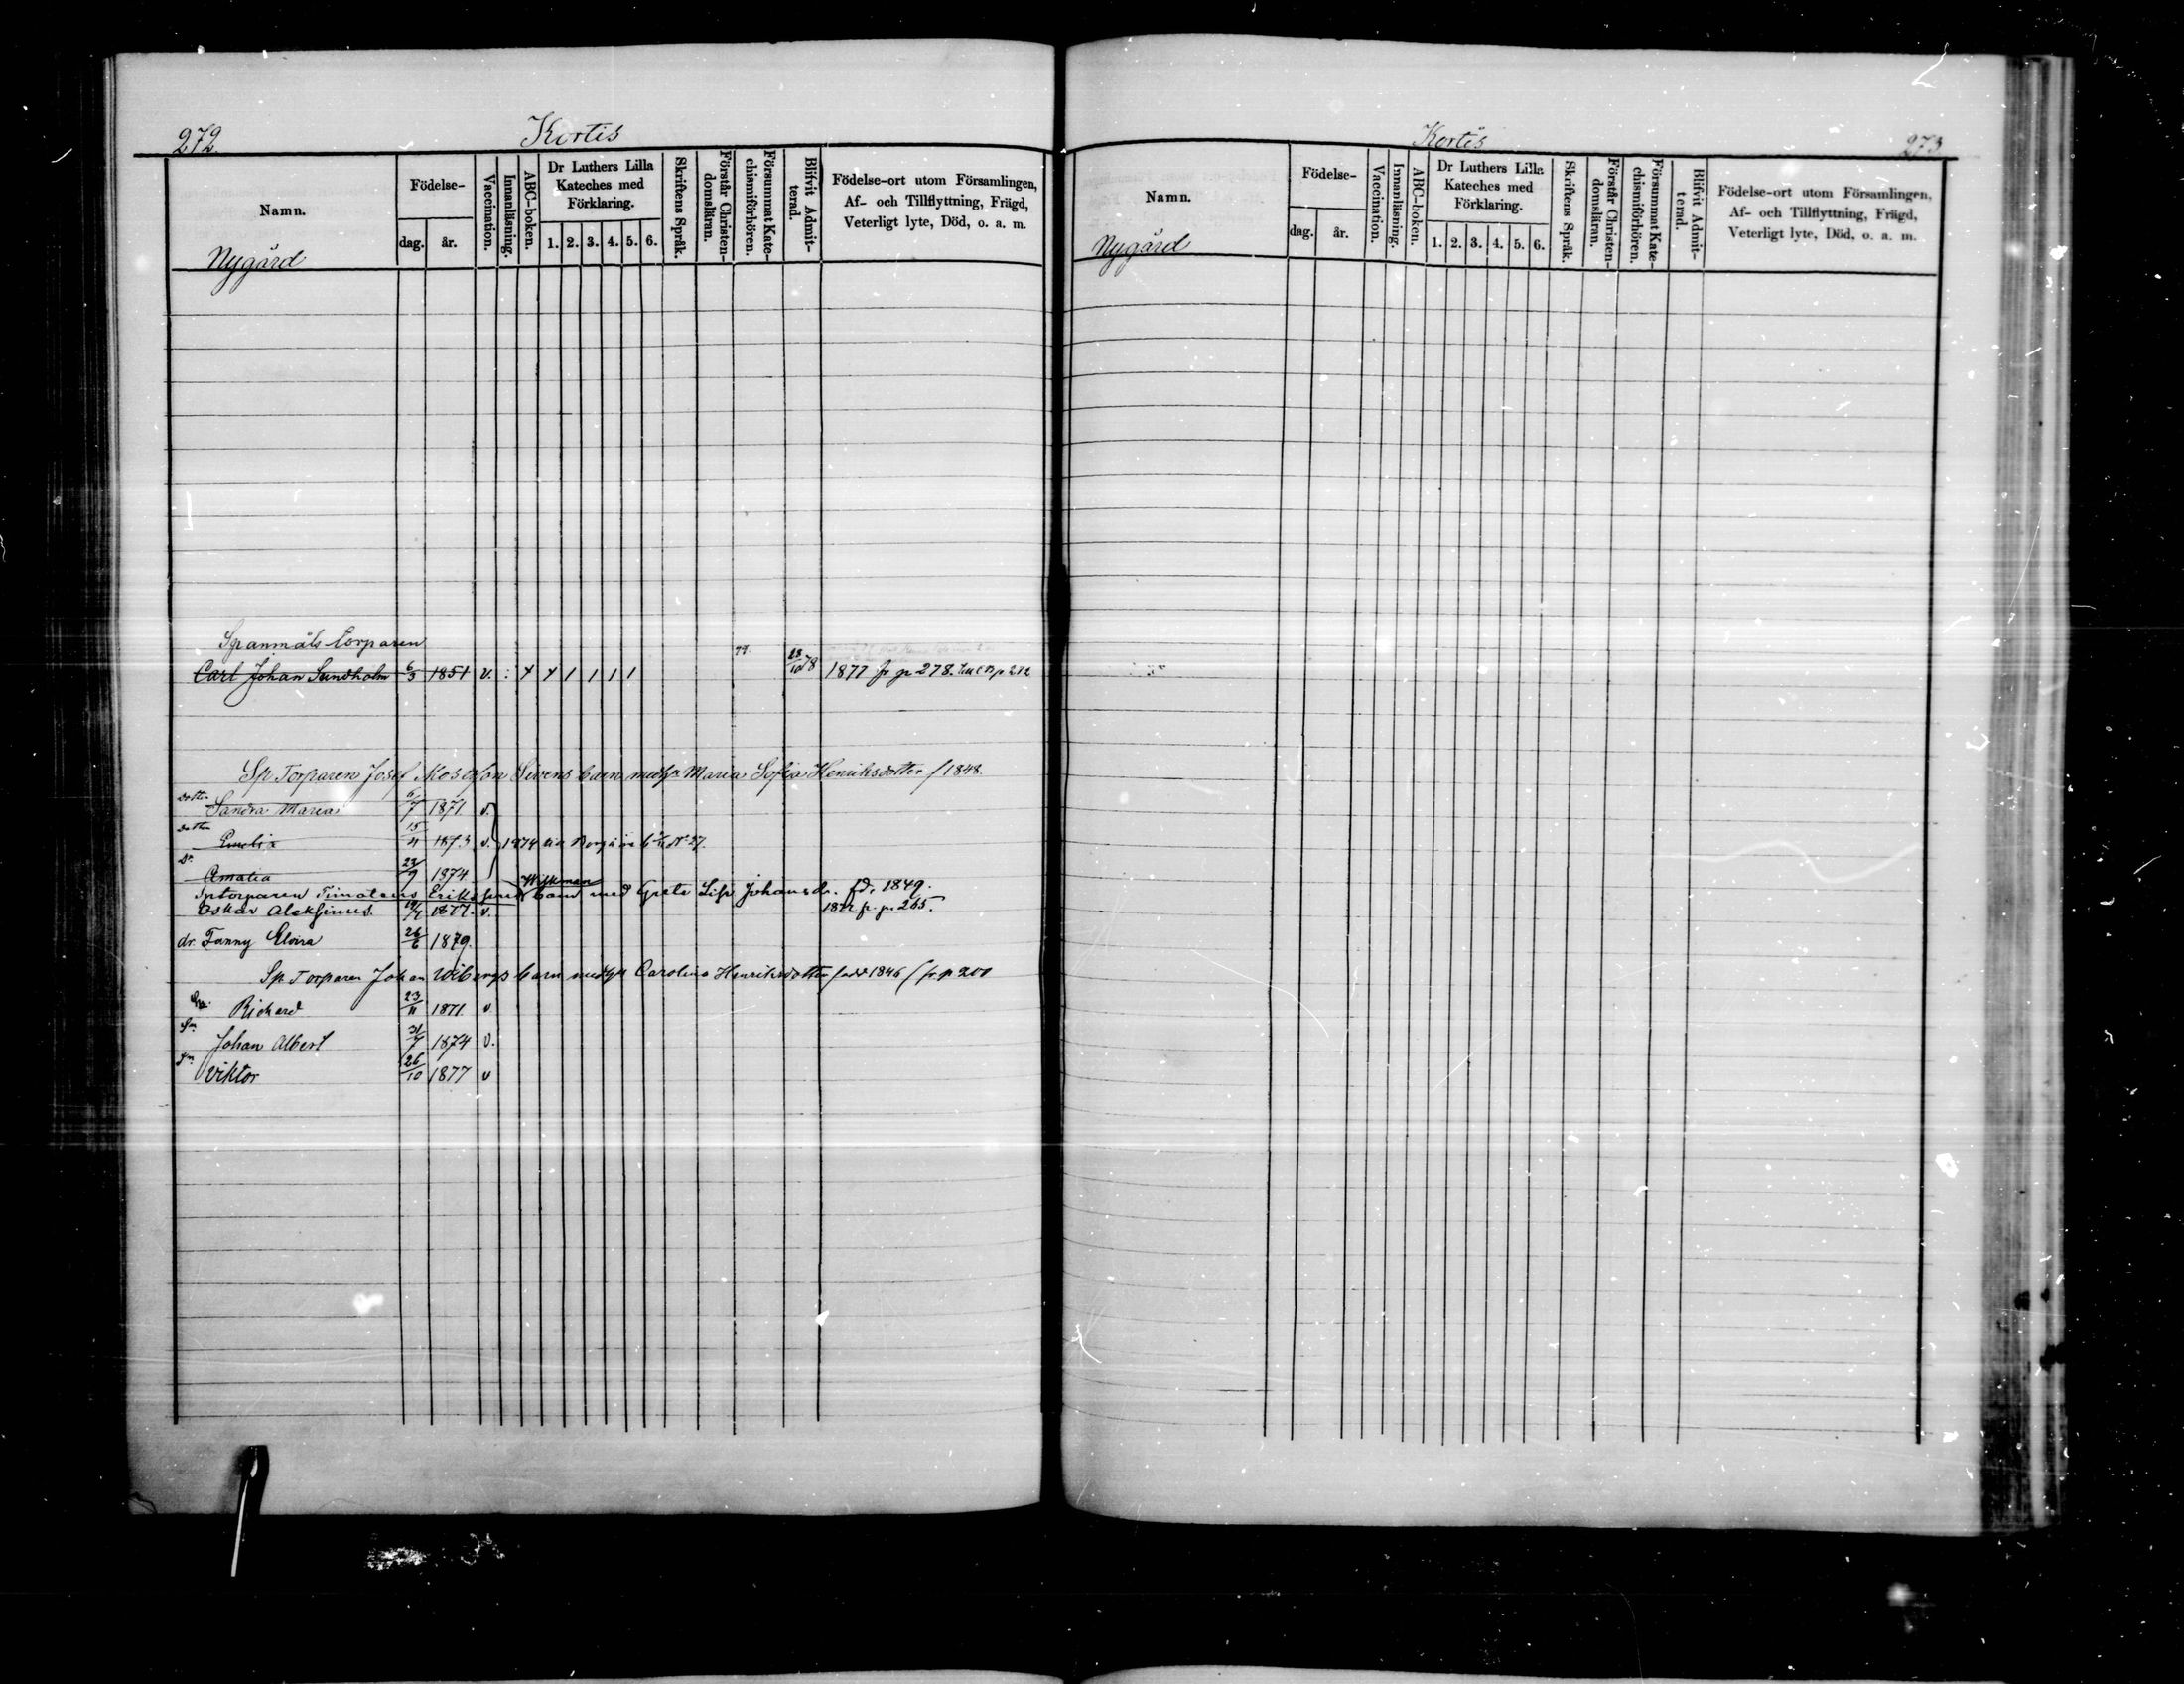 272.
Kortis
Namn.
Födelse-
dag.
år.
Vaccination.
Innanläsning.
ABC-boken.
Dr Luthers Lilla
Kateches med
Förklaring.
1. 2. 3. 4. 5. 6.
Skriftens Språk.
Förstår Christen-
domsläran.
Försummat Kate-
chismiförhören.
Blifvit Admit-
terad.
Födelse-ort utom Församlingen,
Af- och Tillflyttning, Frägd,
Veterligt lyte, Död, o. a. m.
Nygård
Spanmåls torparen
Carl Johan Sundholm 6/3 1851 v. : x x 1 1 1 1 28/10 78 1877 fr p 278.
Sp Torparen Josef barn med Maria Sofia Henriksdotter f 1848.
dotter Sandra Maria 6/7 1871 v.
dotter Emelia 15/11 1873 v. 1874
Dr Amalia 23/9 1874
Wikman
Sptorparen Timoteus Erikssons barn med Greta Lisa Johansdr. fd. 1849.
Oskar Aleksius. 19/4 1877. v. p. 265.
dr. Fanny Elvira 26/6 1879.
Sp Torparen Johan Wibergs barn med Carolina Henriksdotter född 1846 fr. p 200
Son Richard 23/11 1871 v.
Sn Johan Albert 31/7 1874 v.
Sn Viktor 26/10 1877 v
Kortis
273
Namn.
Födelse-
dag.
år.
Vaccination.
Innanläsning.
ABC-boken.
Dr Luthers Lilla
Kateches med
Förklaring.
1. 2. 3. 4. 5. 6.
Skriftens Språk.
Förstår Christen-
domsläran.
Försummat Kate-
chismiförhören.
Blifvit Admit-
terad.
Födelse-ort utom Församlingen,
Af- och Tillflyttning, Frägd,
Veterligt lyte, Död, o. a. m.
Nygård